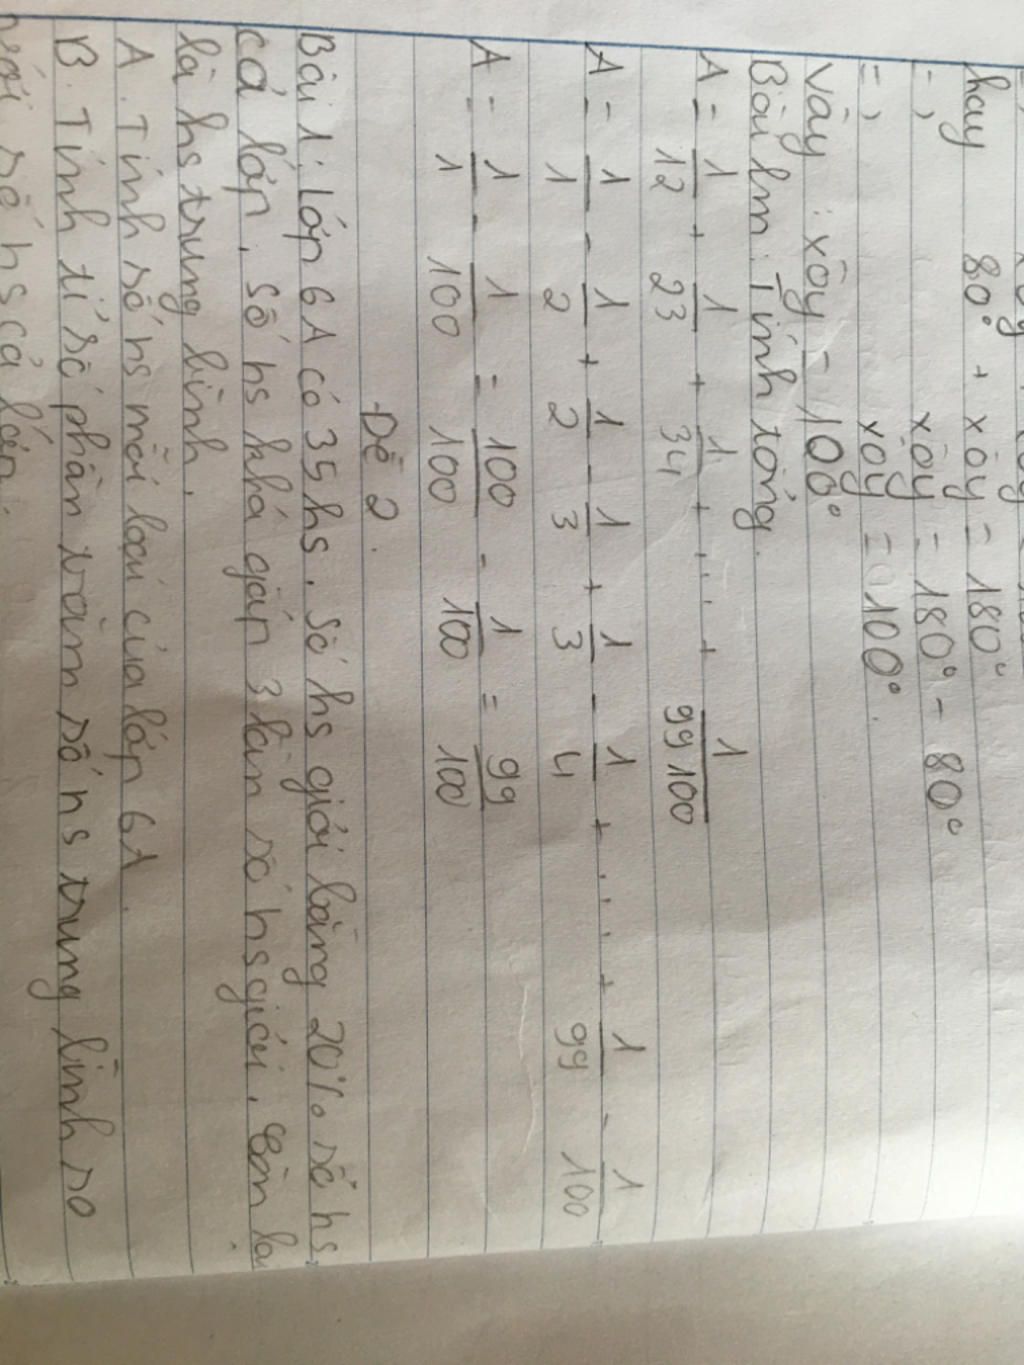 hay 80° + xôy = 180°
=> xôy = 180° - 80°
=> xôy = 100°.
Vậy : xôy = 100°
Bài lm : Tính tổng.
A = 1/12 + 1/23 + 1/34 + .... + 1/99 100
A = 1/1 - 1/2 + 1/2 - 1/3 + 1/3 - 1/4 + ..... + 1/99 - 1/100
A = 1/1 - 1/100 = 100/100 - 1/100 = 99/100
Đề 2.
Bài 1: Lớp 6A có 35 hs. số hs giỏi bằng 20% số hs
cả lớp. số hs khá gấp 3 lần số hs giỏi. Còn lại
là hs trung bình.
A. Tính số hs mỗi loại của lớp 6A.
B. Tính tỉ số phần trăm số hs trung bình so
với số hs cả lớp.